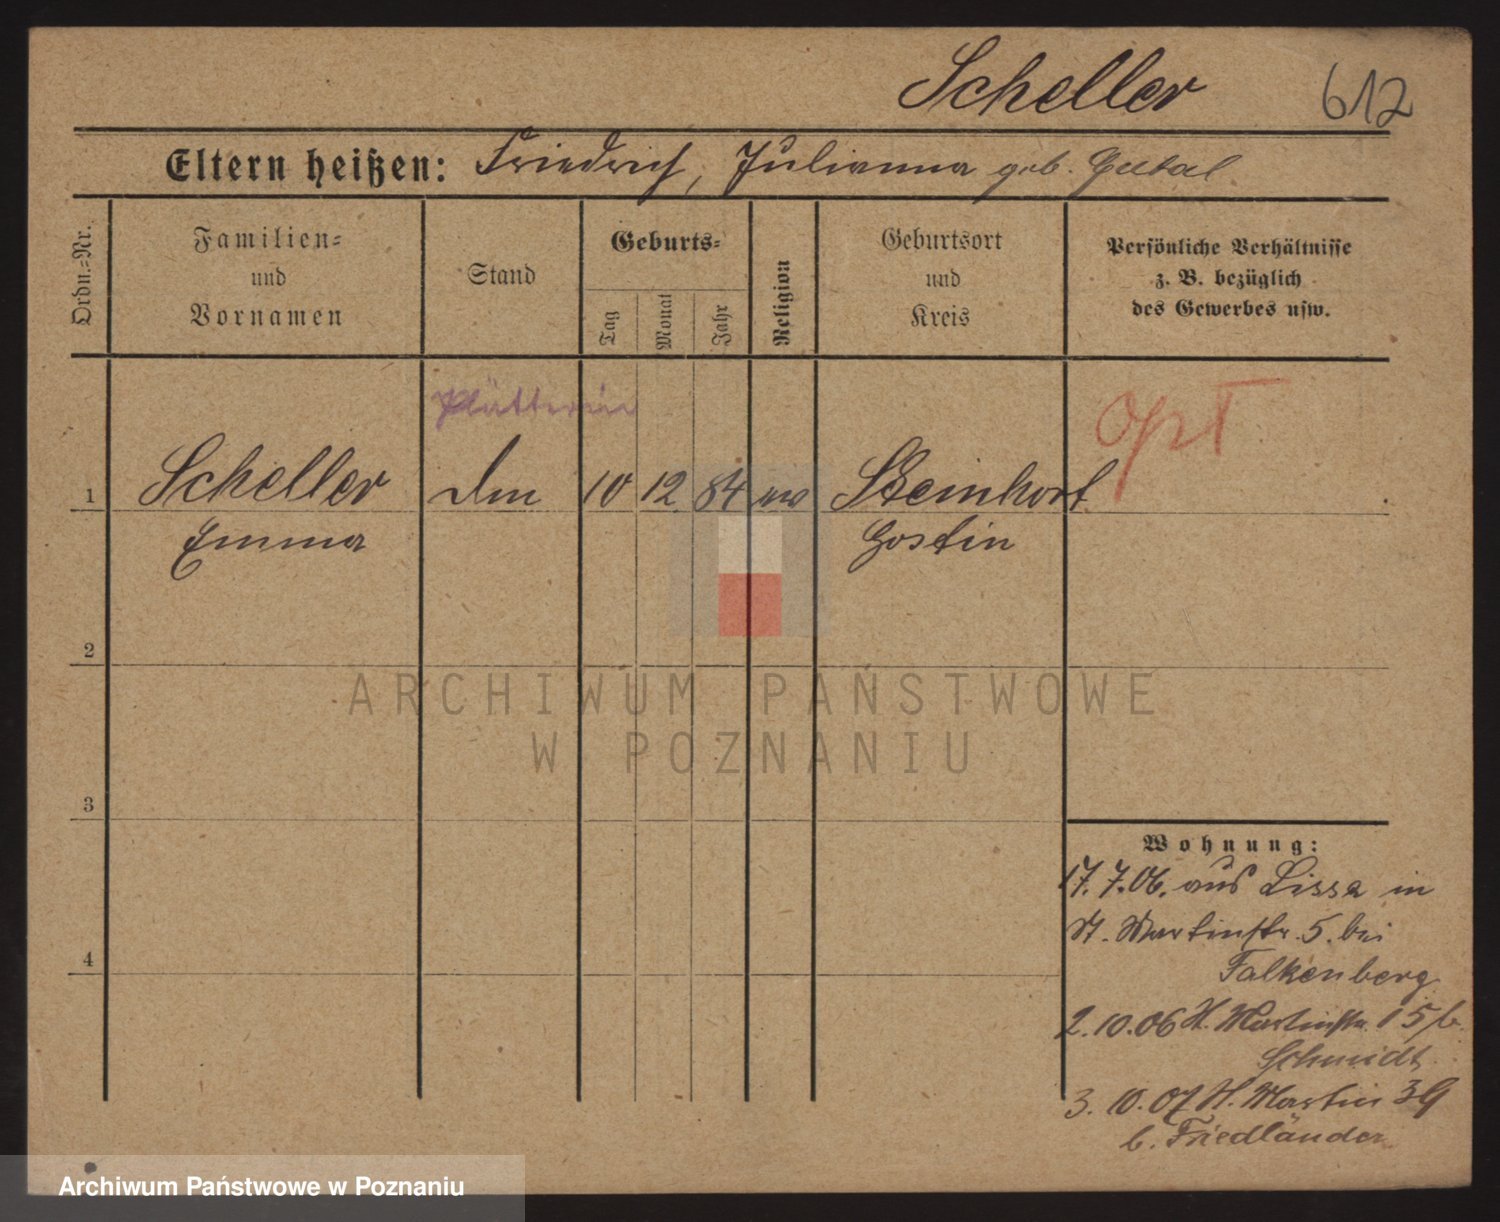 Scheller 612
Eltern heißen: Friedrich, Julianna geb. Gubal
Ordn.-Nr.
Familien-
und
Vornamen
Stand
Geburts-
Tag
Monat
Jahr
Religion
Geburtsort
und
Kreis
Persönliche Verhältnisse
z. B. bezüglich
des Gewerbes usw.
Plätterin
opt
1 Scheller 10 12 84 ev Steinhort
Emma Gostin
2
3
4
Wohnung:
17.7.06. aus Lissa in
St. Martinstr. 5. bei
Falkenberg
2.10.06 St. Martinstr. 15 b.
Schmidt
3.10.07 St. Martin 39
b. Friedländer
ARCHIWUM PAŃSTWOWE
W POZNANIU
Archiwum Państwowe w Poznaniu